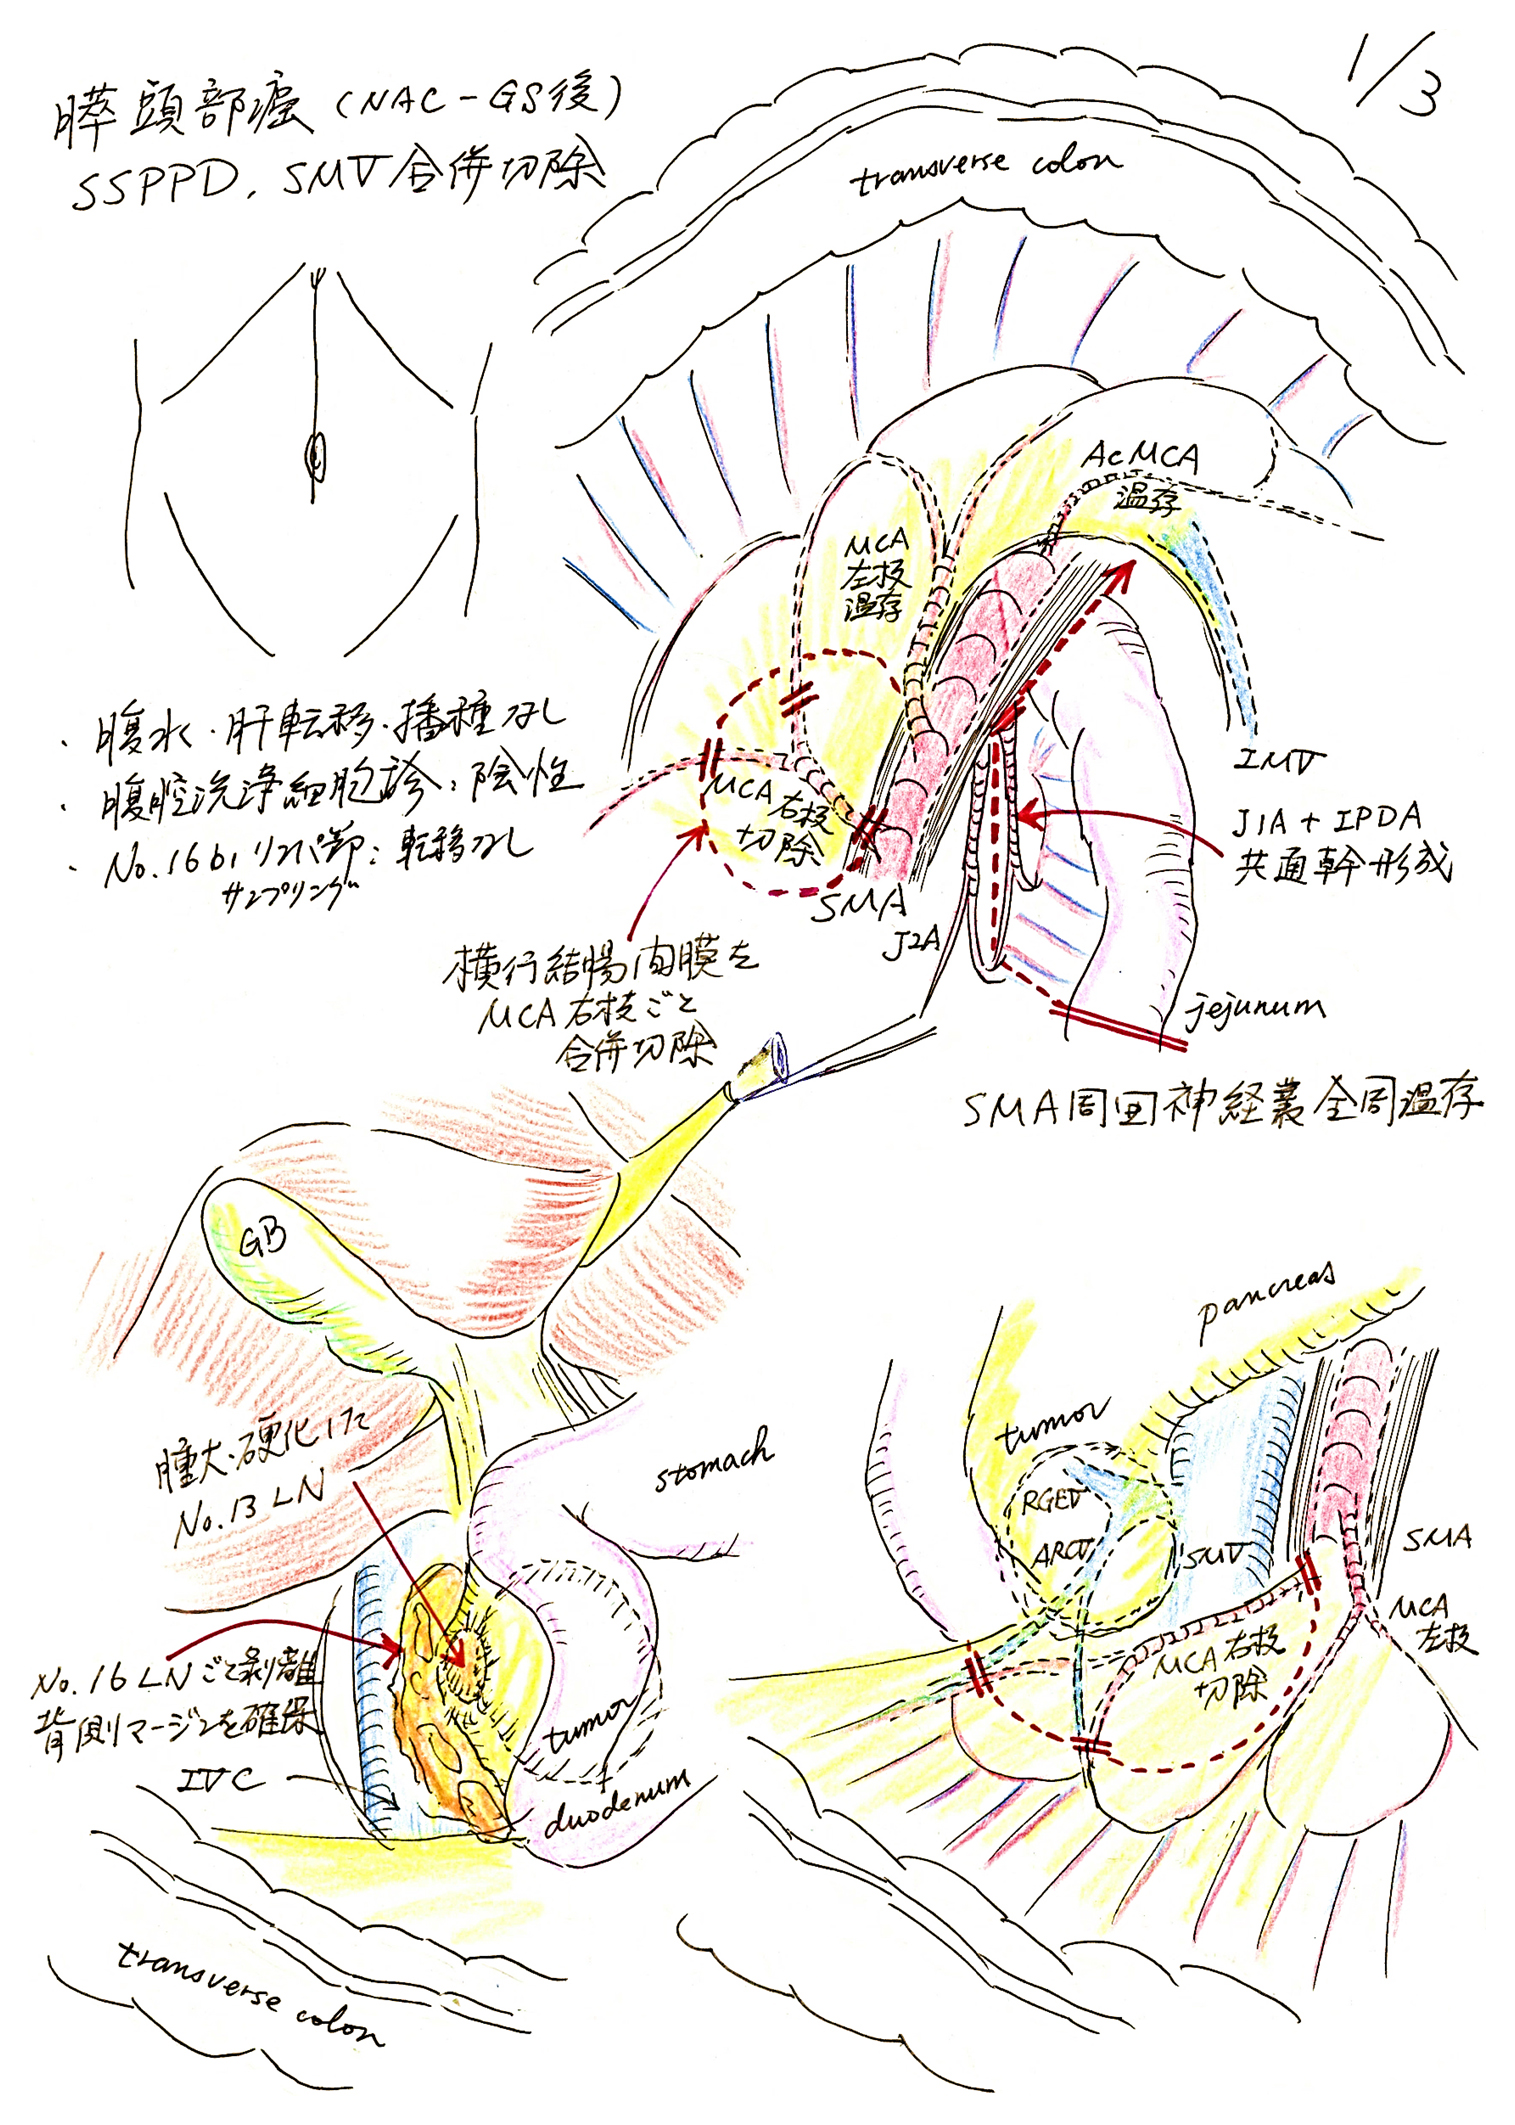 1/3
膵頭部癌(NAC-GS後)
SSPPD, SMV合併切除
transverse colon
・腹水・肝転移・播種なし
・腹腔洗浄細胞診:陰性
・No.16b1リンパ節:転移なし
サンプリング
AcMCA
温存
MCA
左枝
温存
MCA右枝
切除
SMA
J2A
IMV
J1A+IPDA
共通幹形成
横行結腸間膜を
MCA右枝ごと
合併切除
jejunum
SMA周囲神経叢全周温存
GB
腫大・硬化した
No.13LN
stomach
No.16LNごと剥離
背側マージンを確保
IVC
tumor
duodenum
transverse colon
pancreas
tumor
RGEV
ARCV
SMV
SMA
MCA
左枝
MCA右枝
切除